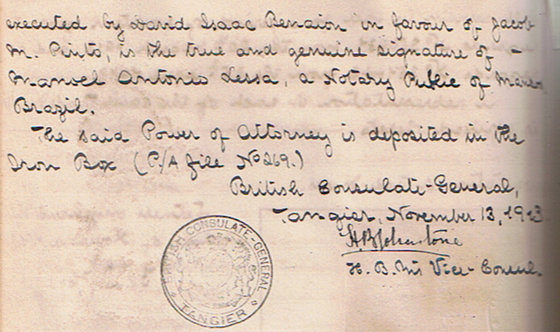 executed by David Isaac Benaion in favour of Jacob
M. Pinto, is the true and genuine signature of —
Manoel Antonio Lessa, a Notary Public of
Brazil.
The said Power of Attorney is deposited in the
Iron Box (P/A file No 269.)
British Consulate-General,
Tangier, November 13, 1913
H. B. M's Vice-Consul.
BRITISH CONSULATE-GENERAL
TANGIER